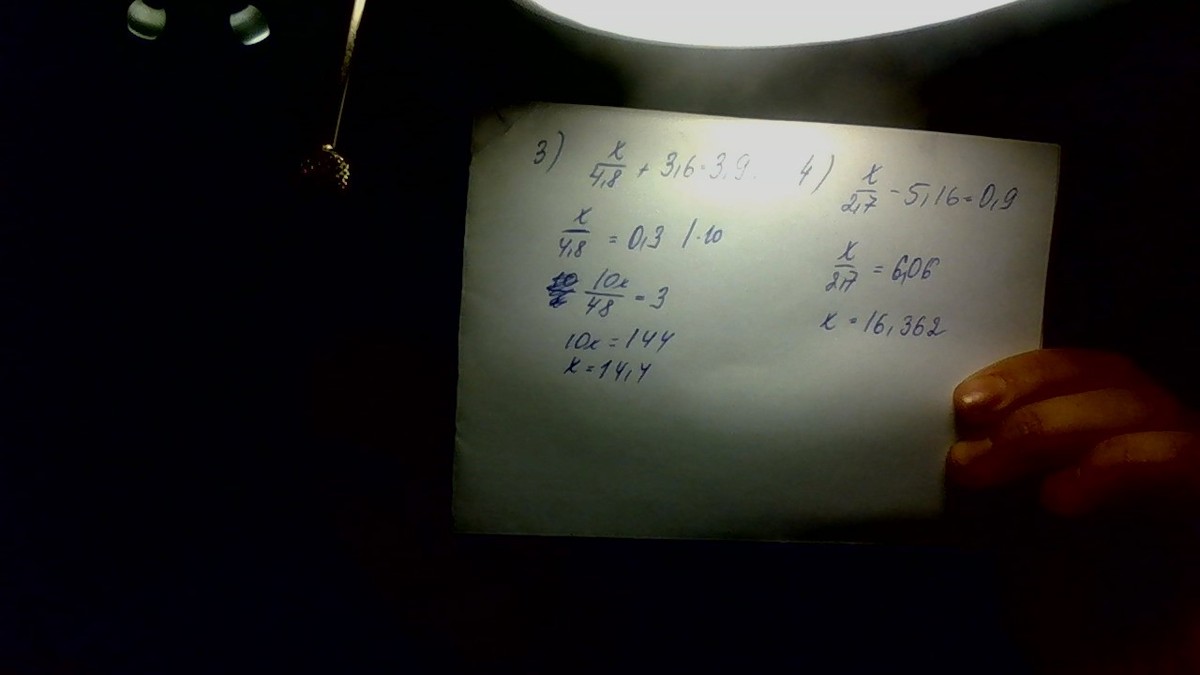 3) x/4,8 + 3,6 = 3,9
x/4,8 = 0,3 /·10
10x/48 = 3
10x = 144
x = 14,4
4) x/2,7 - 5,16 = 0,9
x/2,7 = 6,06
x = 16,362